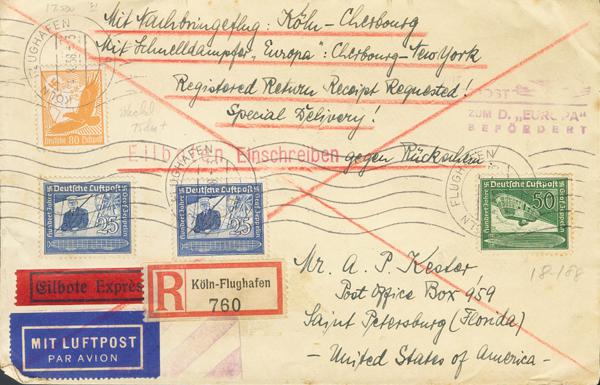 Mit Nachbringeflug: Köln-Cherbourg
Mit Schnelldampfer „Europa“: Cherbourg-New York
Registered Return Receipt Requested!
Special Delivery!
Eilboten Einschreiben gegen Rückschein
POST
ZUM D. „EUROPA“
BEFÖRDERT
KÖLN FLUGHAFEN
Deutsche 80 Luftpost
FLUGHAFEN
KÖLN FLUGHAFEN
Hundert Jahre Deutsche Luftpost Graf Zeppelin
25
Hundert Jahre Deutsche Luftpost Graf Zeppelin
25
Hundert Jahre Deutsche Luftpost Graf Zeppelin
50
Eilbote Exprès
R Köln-Flughafen
760
MIT LUFTPOST
PAR AVION
18-188
Mr. A. P. Kester,
Post Office Box 959
Saint Petersburg (Florida)
- United States of America -